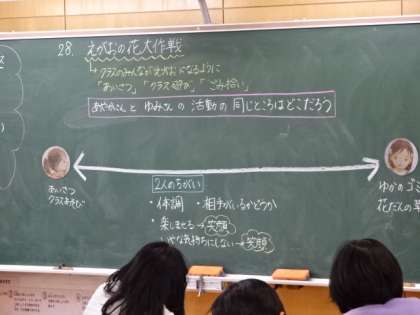 28. えがおの花大作戦
クラスのみんながえがおになるように
「あいさつ」「クラス遊び」「ごみ拾い」
あやかさんと ゆみさんの 活動の同じところはどこだろう
あいさつ
クラスあそび
2人のちがい
・体調 ・相手がいるかどうか
・楽しませる→笑顔
いやな気持ちにしない→笑顔
ゆかのゴ
花だんの草